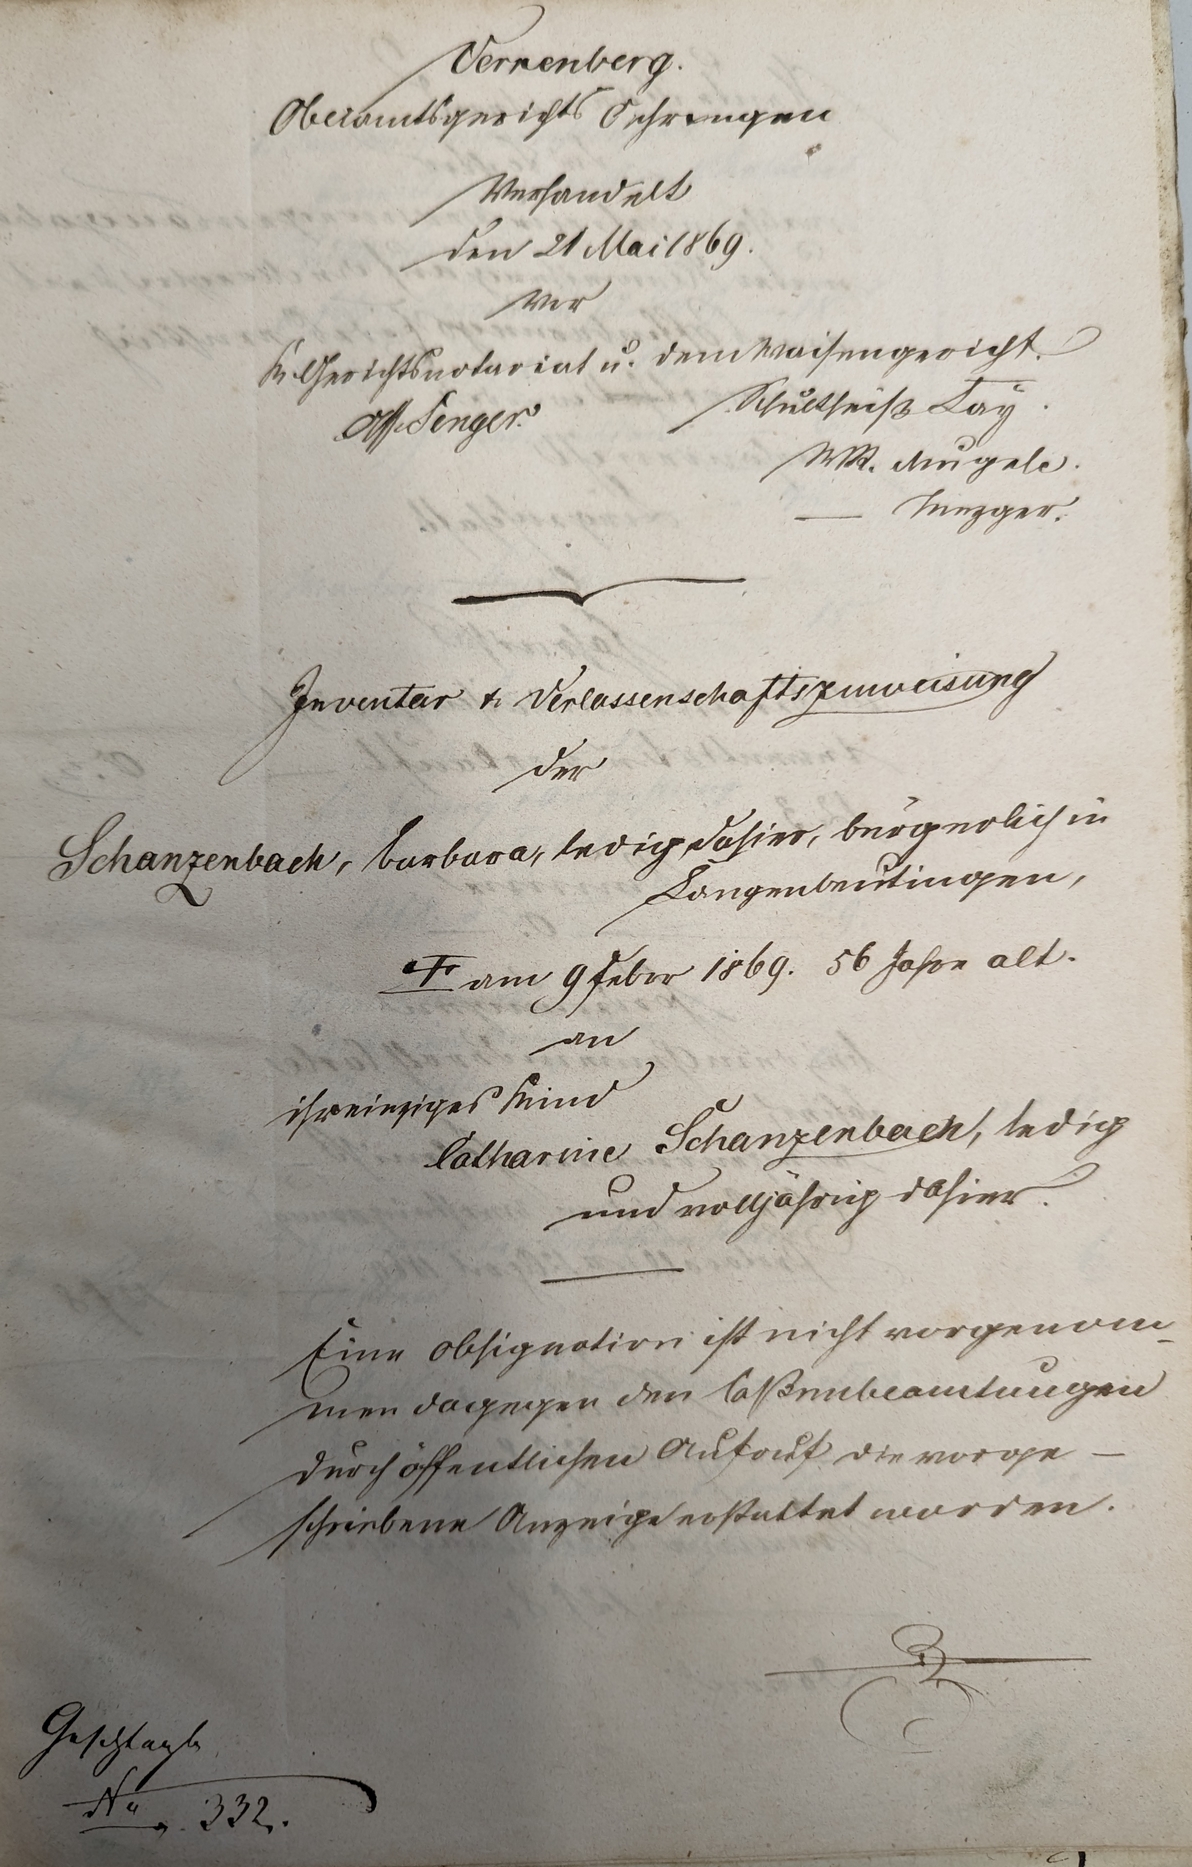 Verrenberg.
Oberamtsgerichts Oehringen
Verhandelt
den 21 Mai 1869.
vor
K. Gerichtsnotariat u. dem Waisengericht.
Ass. Senger. Schultheiß Tay.
WR. Angele.
— Mezger.
Inventar & Verlassenschaftszuweisung
der
Schanzenbach, Barbara, ledig dahier, bürgerlich in
Langenbeutingen,
† am 9 Febr 1869. 56 Jahre alt.
an
ihr einziges Kind
Catharine Schanzenbach, ledig
und volljährig dahier.
Eine Obsignation ist nicht vorgenom-
men dagegen den Caßenbeamtungen
durch öffentlichen Aufruf die vorge-
schriebene Anzeige erstattet worden.
No. 332.